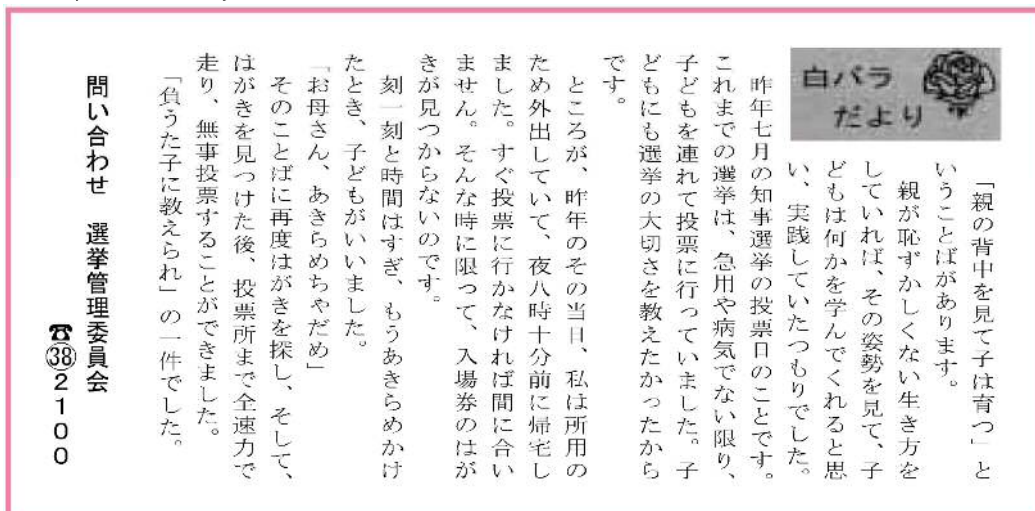 白バラ
だより
「親の背中を見て子は育つ」と
いうことばがあります。
親が恥ずかしくない生き方を
していれば、その姿勢を見て、子
どもは何かを学んでくれると思
い、実践していたつもりでした。
昨年七月の知事選挙の投票日のことです。
これまでの選挙は、急用や病気でない限り、
子どもを連れて投票に行っていました。子
どもにも選挙の大切さを教えたかったから
です。
ところが、昨年のその当日、私は所用の
ため外出していて、夜八時十分前に帰宅し
ました。すぐ投票に行かなければ間に合い
ません。そんな時に限って、入場券のはが
きが見つからないのです。
刻一刻と時間はすぎ、もうあきらめかけ
たとき、子どもがいいました。
「お母さん、あきらめちゃだめ」
そのことばに再度はがきを探し、そして、
はがきを見つけた後、投票所まで全速力で
走り、無事投票することができました。
「負うた子に教えられ」の一件でした。
問い合わせ　選挙管理委員会
☎㊳2100